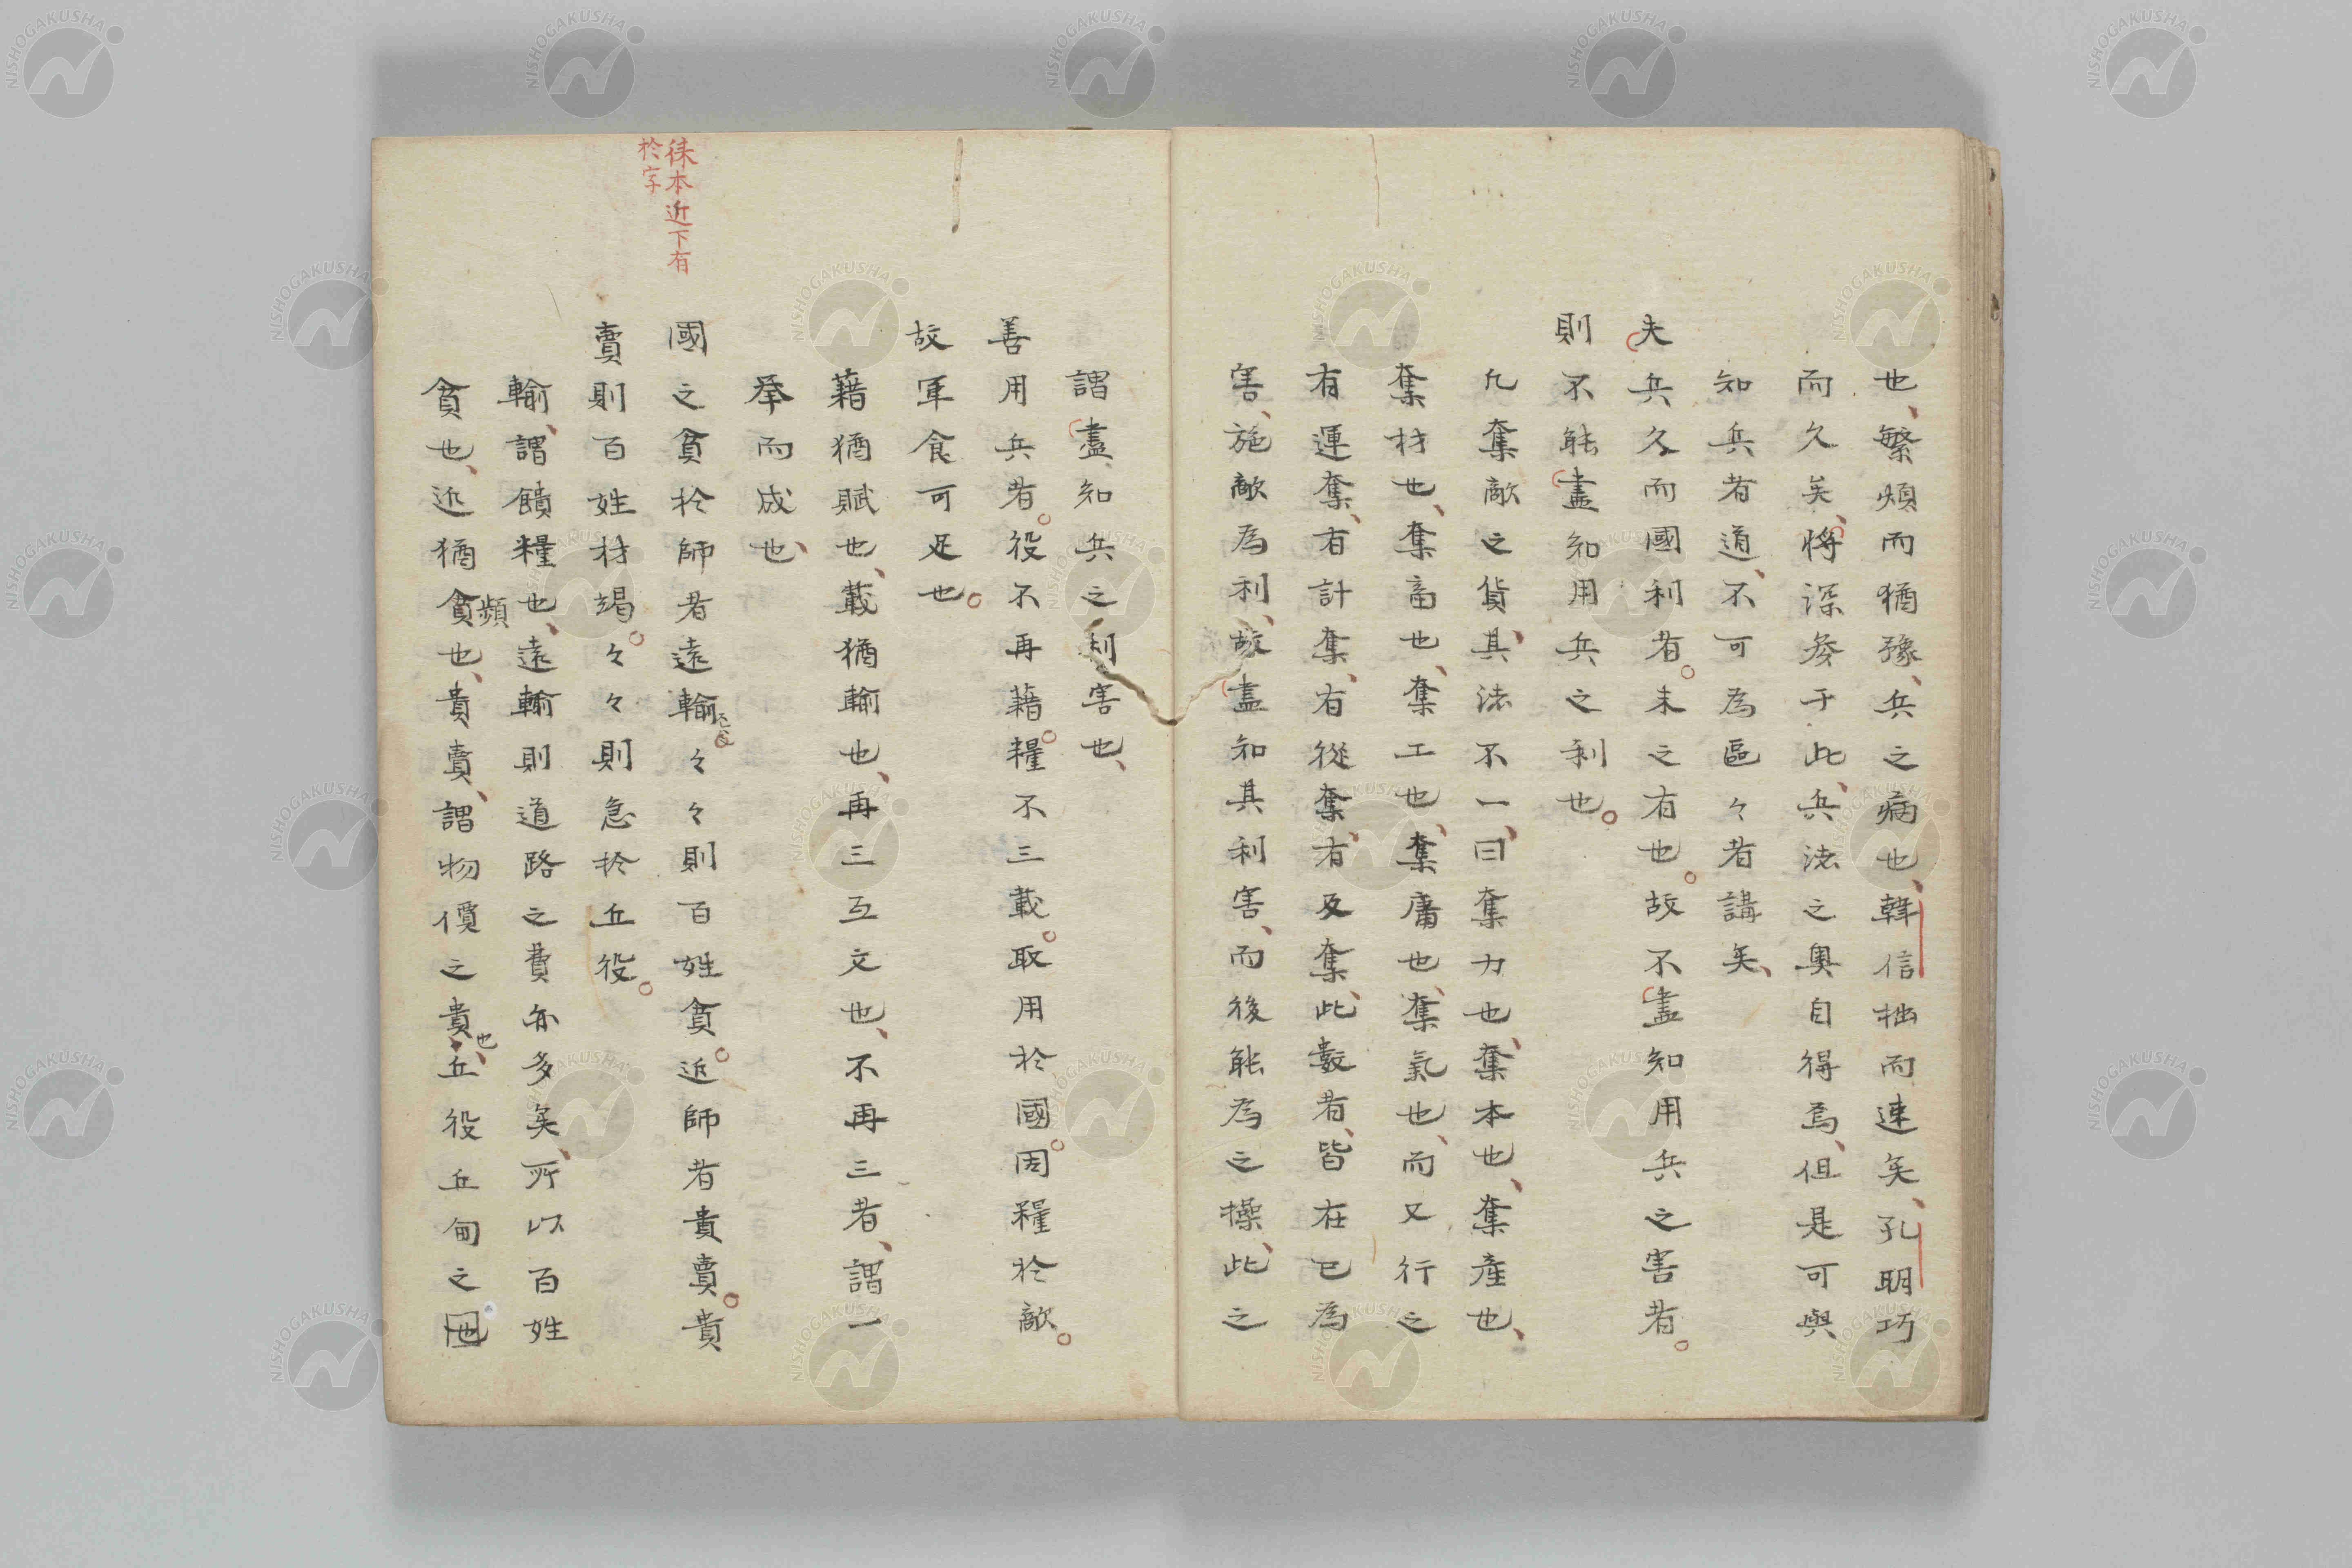 也、繁煩而猶豫、兵之病也、韓信拙而速矣、孔明巧
而久矣、將深發于此、兵法之奧自得焉、但是可與
知兵者道、不可為區々者講矣、
夫兵久而國利者。未之有也。故不盡知用兵之害者。
則不能盡知用兵之利也。
凡奪敵之貨、其法不一、曰奪力也、奪本也、奪產也、
奪材也、奪畜也、奪工也、奪庸也、奪氣也、而又行之
有運奪、有計奪、有從奪、有及奪、此數者、皆在已為
害、施敵為利、故盡知其利害、而後能為之操、此之
謂盡知兵之利害也、
善用兵者。役不再藉。糧不三載。取用於國。因糧於敵。
故軍食可足也。
藉猶賦也、載猶輸也、再三互文也、不再三者、謂一
舉而成也、
國之貧於師者遠輸々々則百姓貧。近師者貴賣。貴
賣則百姓材竭。々々則急於丘役。
輸、謂饋糧也、遠輸則道路之費亦多矣、所以百姓
貧也、近猶貧也、貴賣、謂物價之貴、丘役丘甸之也
頻
也
徠本近下有
於字
NISHOGAKUSHA